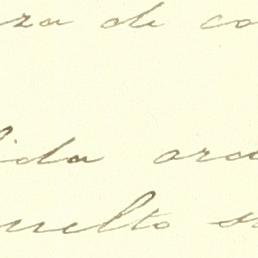 za de co
ida ora
uelto s